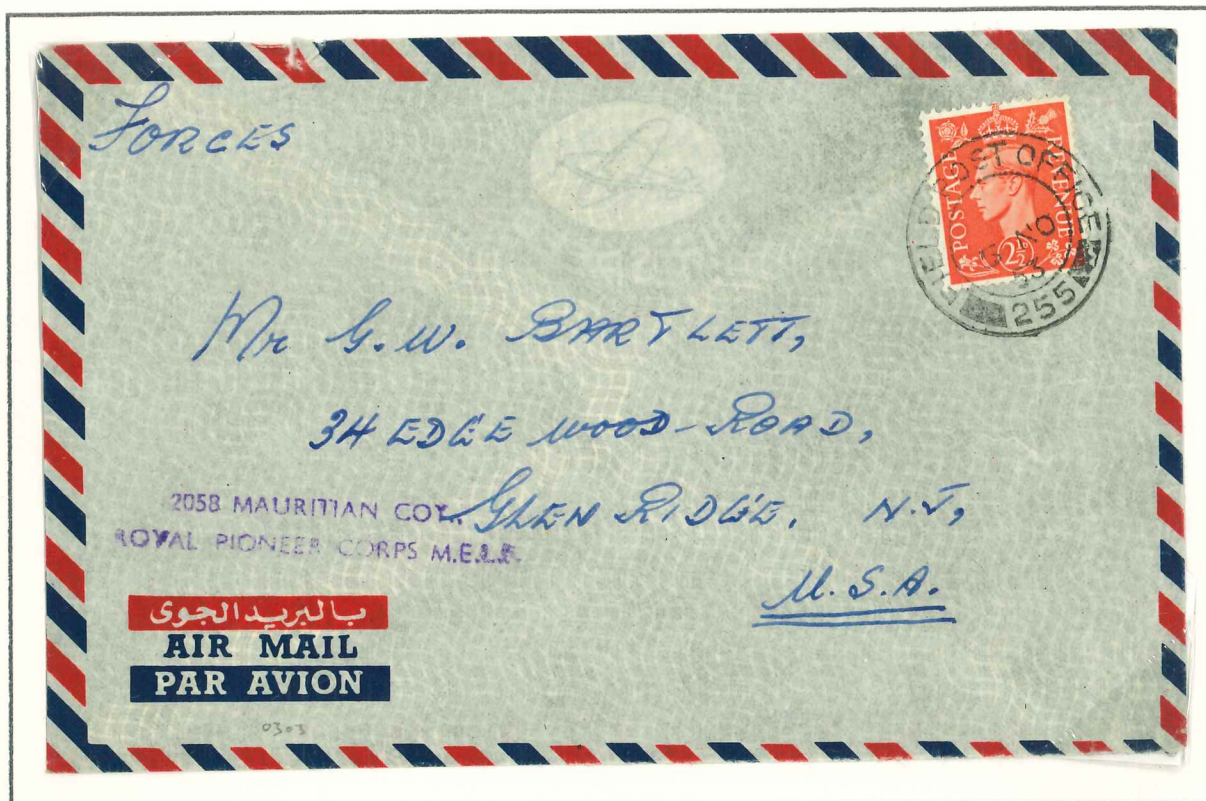 FORCES
POSTAGE REVENUE
2½
FIELD POST OFFICE
NO
53
255
Mr G.W. BARTLETT,
34 EDGE WOOD-ROAD,
GLEN RIDGE, N.J,
U.S.A.
2058 MAURITIAN COY.
ROYAL PIONEER CORPS M.E.L.F.
بالبريد الجوى
AIR MAIL
PAR AVION
0303